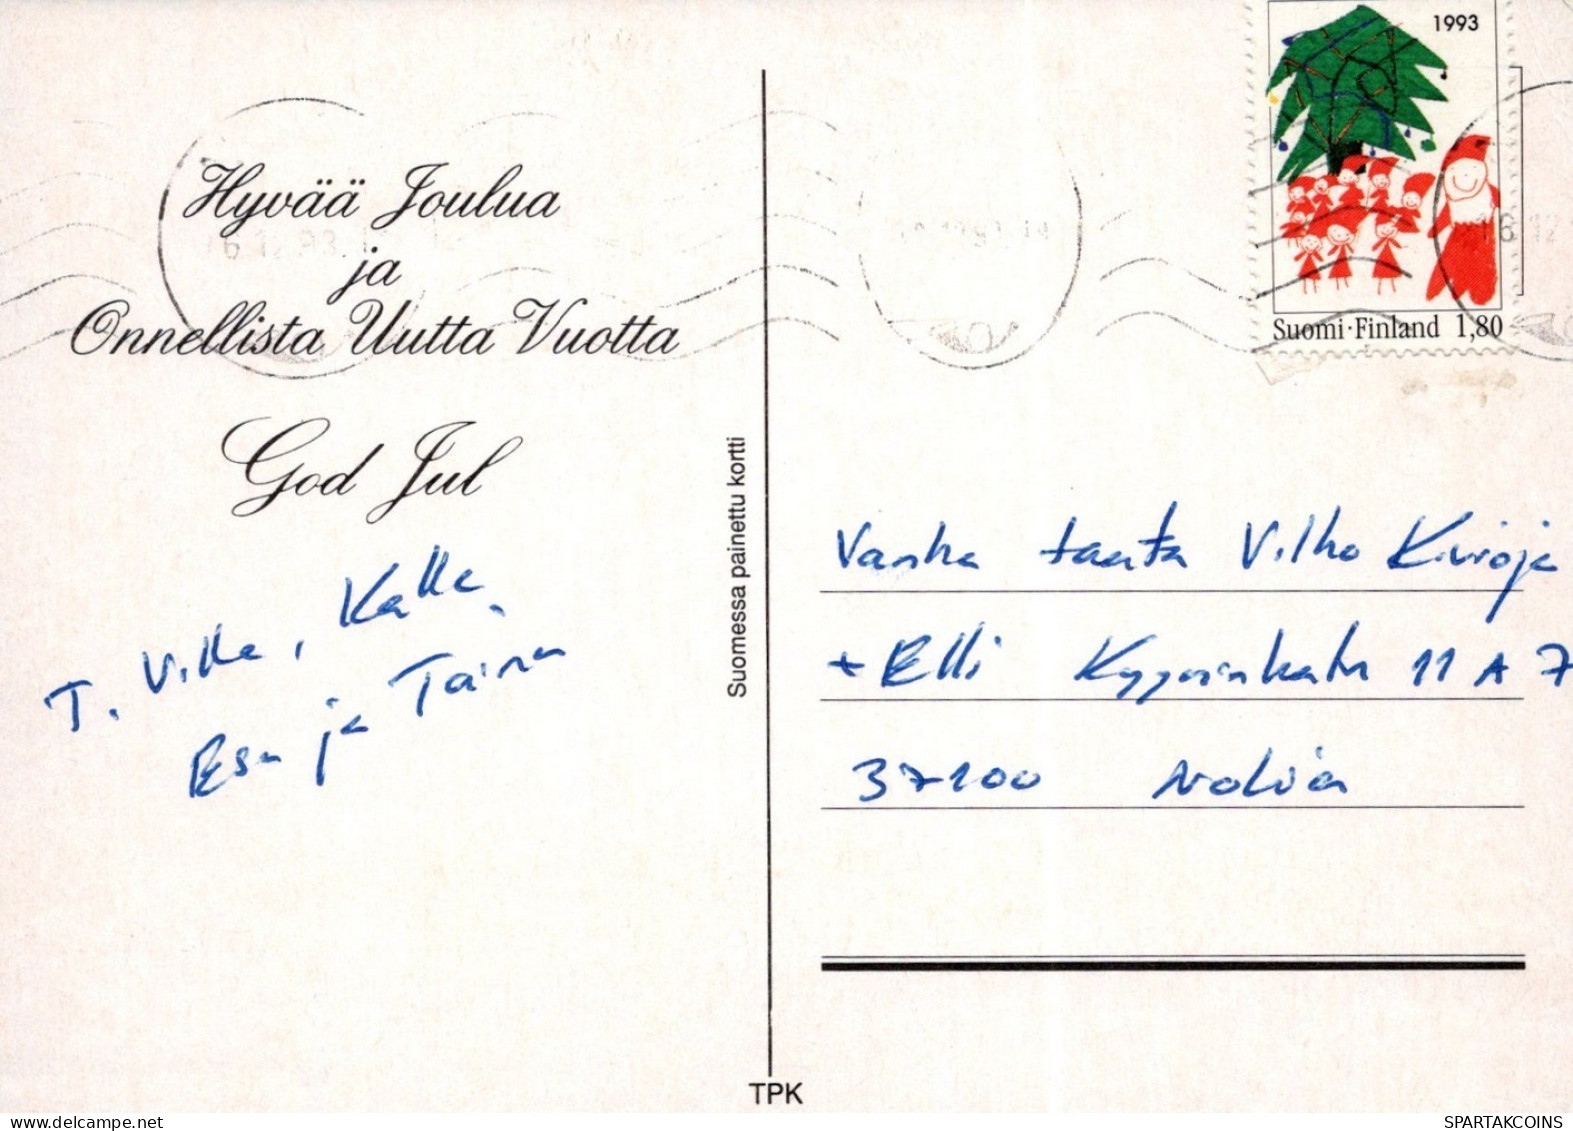 Hyvää Joulua
ja
Onnellista Uutta Vuotta
God Jul
T. Ville, Kalle,
Esa ja Taina
Suomessa painettu kortti
TPK
1993
Suomi·Finland 1,80
16.12.93
16 12
Vanha taata Vilho Kivioja
+ Elli 11 A 7
37100 Nokia
SPARTAKCOINS